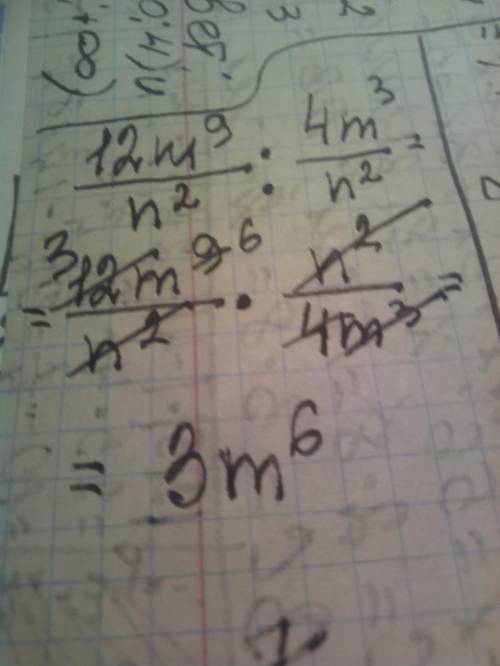 12m⁹/n² : 4m³/n² =
= 12m⁹/n² · n²/4m³ =
3 6
= 3m⁶